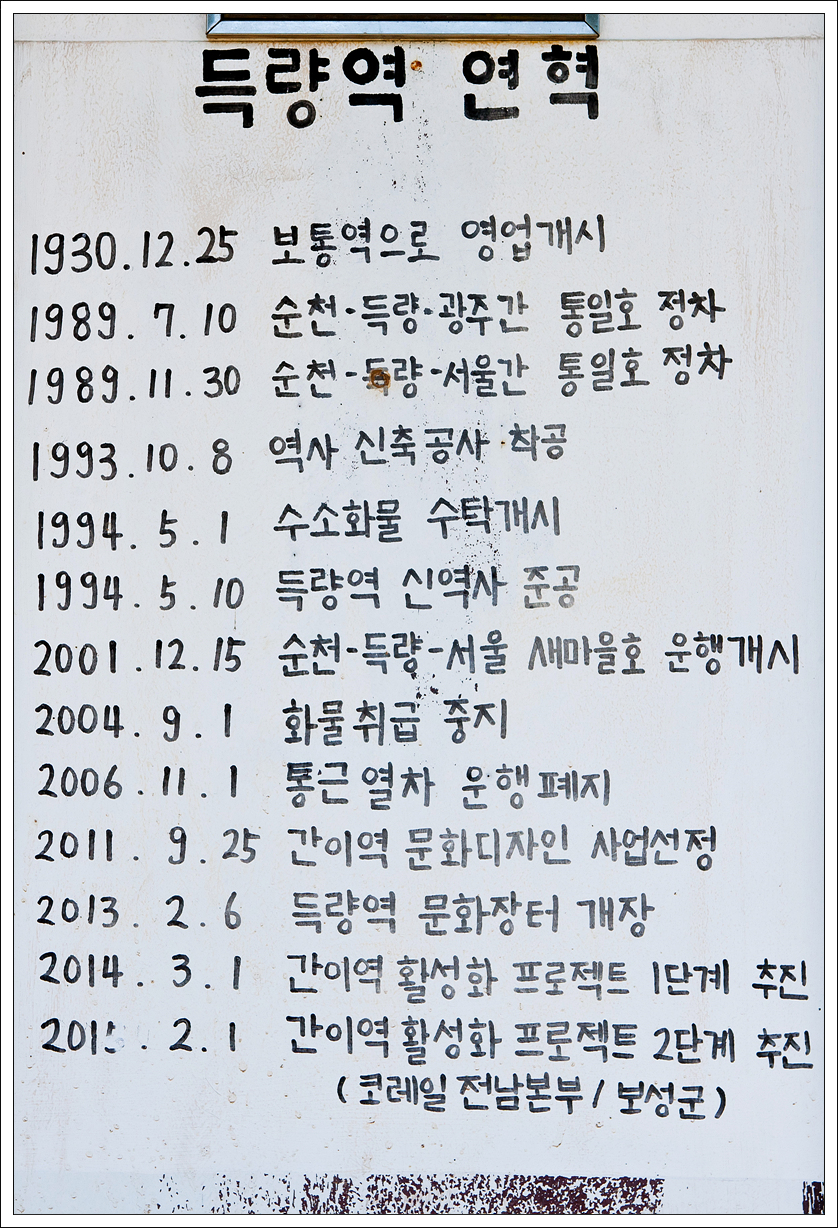 득량역 연혁
1930.12.25 보통역으로 영업개시
1989. 7. 10 순천-득량-광주간 통일호 정차
1989.11.30 순천-득량-서울간 통일호 정차
1993.10.8 역사 신축공사 착공
1994. 5. 1 수소화물 수탁개시
1994. 5. 10 득량역 신역사 준공
2001.12.15 순천-득량-서울 새마을호 운행개시
2004. 9. 1 화물취급 중지
2006.11. 1 통근열차 운행폐지
2011. 9. 25 간이역 문화디자인 사업선정
2013. 2. 6 득량역 문화장터 개장
2014. 3. 1 간이역 활성화 프로젝트 1단계 추진
2. 1 간이역 활성화 프로젝트 2단계 추진
(코레일 전남본부/보성군)